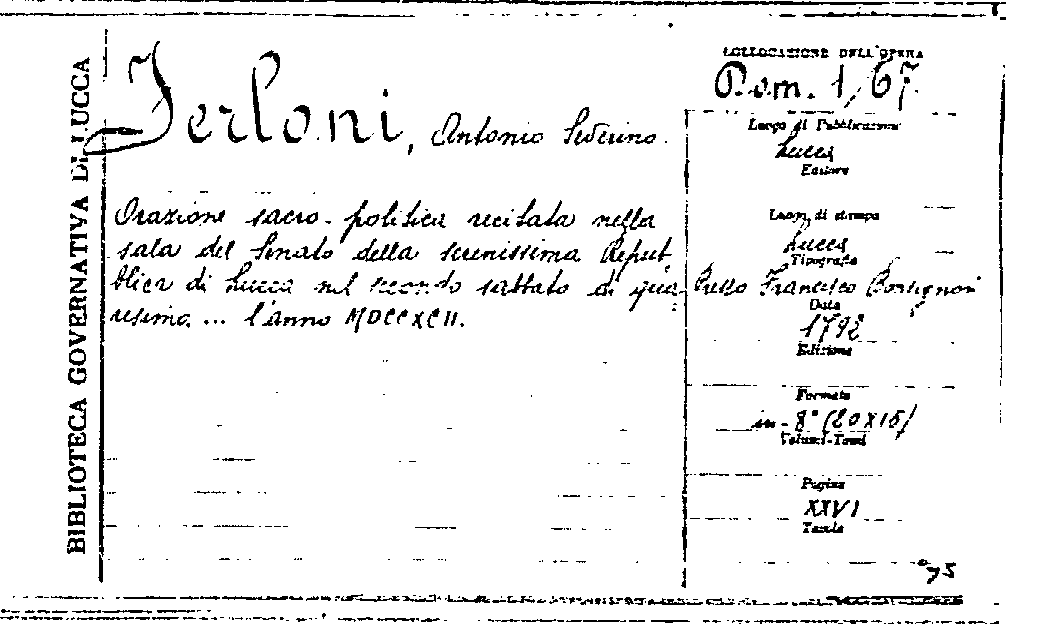 BIBLIOTECA GOVERNATIVA DI LUCCA
Ferloni, Antonio Severino
Orazione sacro-politica recitata nella
sala del Senato della serenissima Repub-
blica di Lucca nel secondo sabbato di qua-
resima ... l'anno MDCCXCII.
COLLOCAZIONE DELL'OPERA
Dom. 1/67
Luogo di Pubblicazione
Lucca
Editore
Luogo di stampa
Lucca
Tipografia
Presso Francesco Bonsignori
Data
1792
Edizione
Formato
in-8° (20x15)
Volumi-Tomi
Pagine
XXVI
Tavole